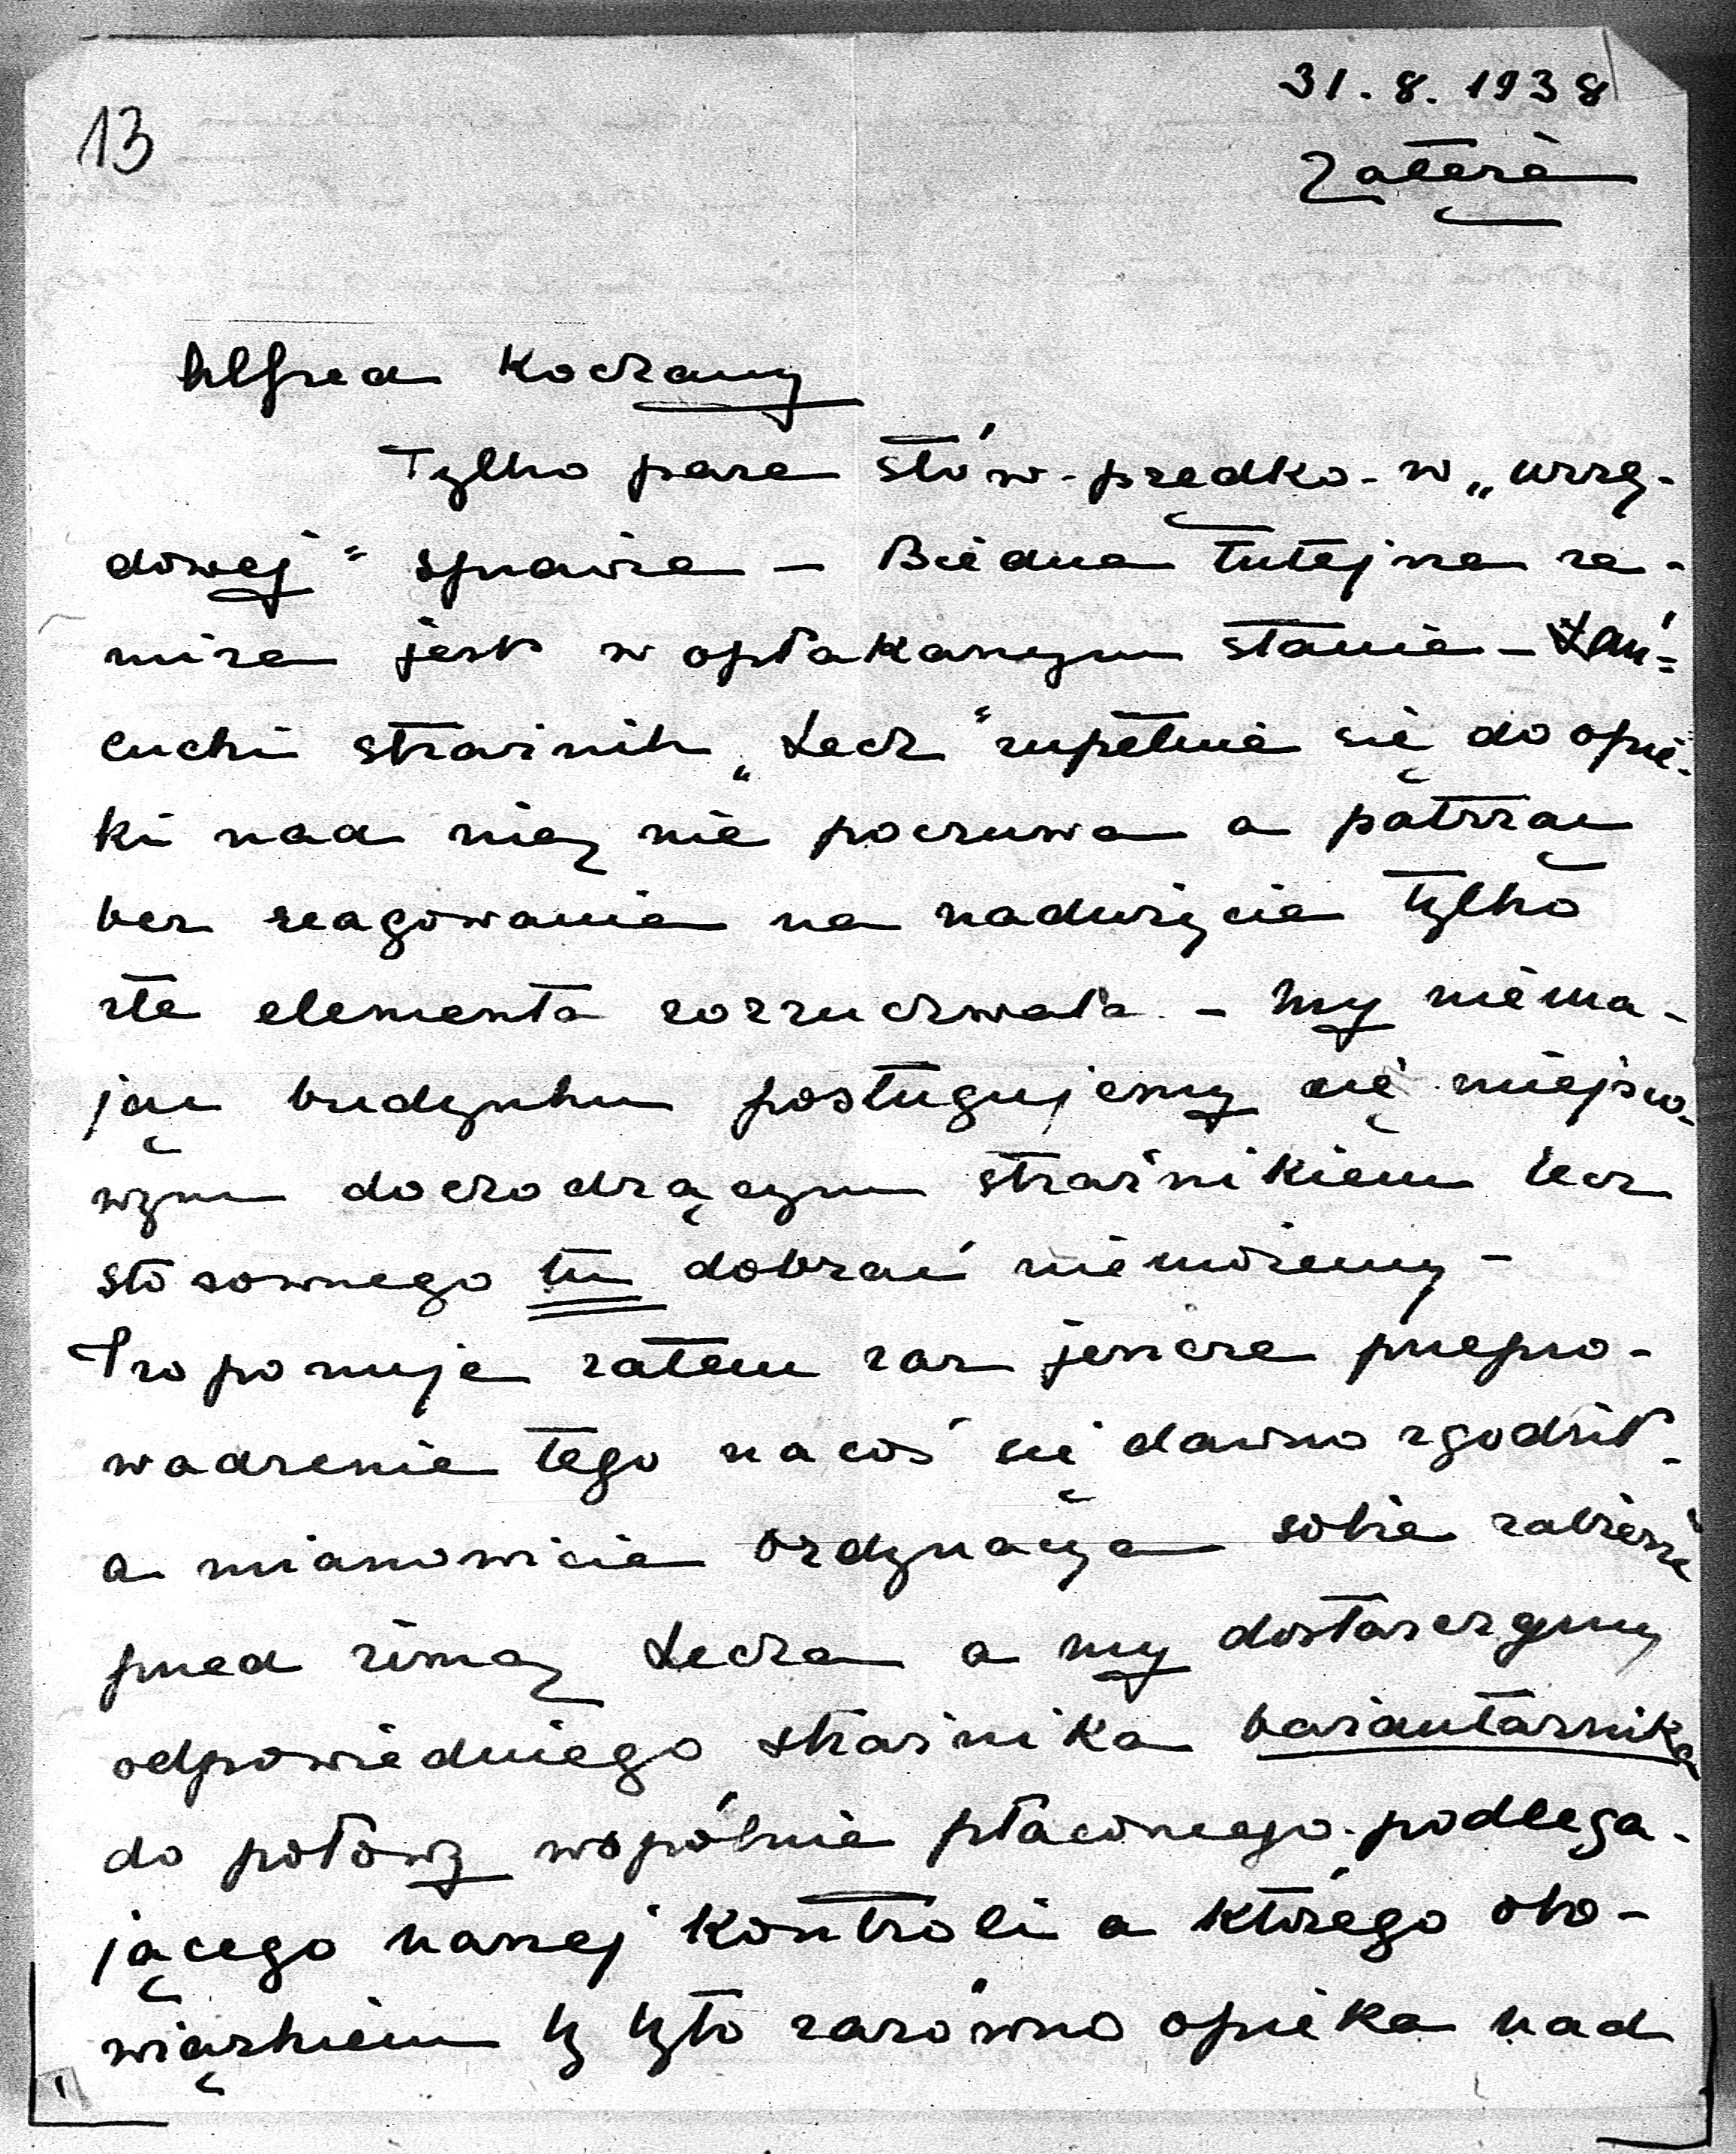 13
31.8.1938
Zalesie
Alfred Kochany
Tylko parę słów - prędko - w „urzę-
dowej" sprawie - Biedna tutejsza zwie-
rzyna jest w opłakanym stanie - Łań-
cucki strażnik „Lech" zupełnie się do opie-
ki nad nią nie poczuwa a patrząc
bez reagowania na nadużycia tylko
złe elementa rozzuchwala. - My niema-
jąc budynku posługujemy się miejsco-
wym dochodzącym strażnikiem lecz
stosownego tu dobrać niemożemy -
Proponuję zatem raz jeszcze przepro-
wadzenie tego na coś się dawno zgodził -
a mianowicie Ordynacya sobie zabierze
przed zimą Lecha a my dostarczymy
odpowiedniego strażnika bażantarnika
do połowy wspólnie płaconego - podlega-
jącego naszej kontroli a którego obo-
wiązkiem by było zarówno opieka nad